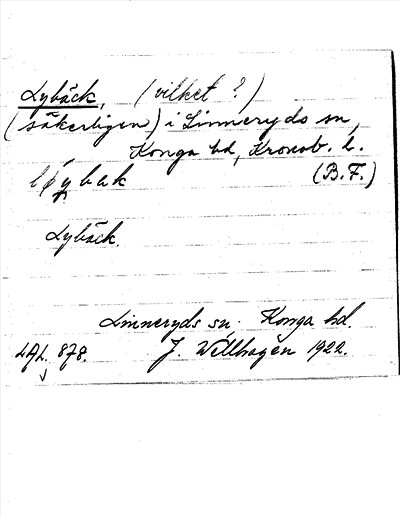 Lybäck, (vilket?)
(säkerligen) i Linneryds sn,
Konga hd, Kronob. l.
(B.F.)
Lybäck.
Linneryds sn. Konga hd.
LAL. 878. J. Wellhagen 1922.